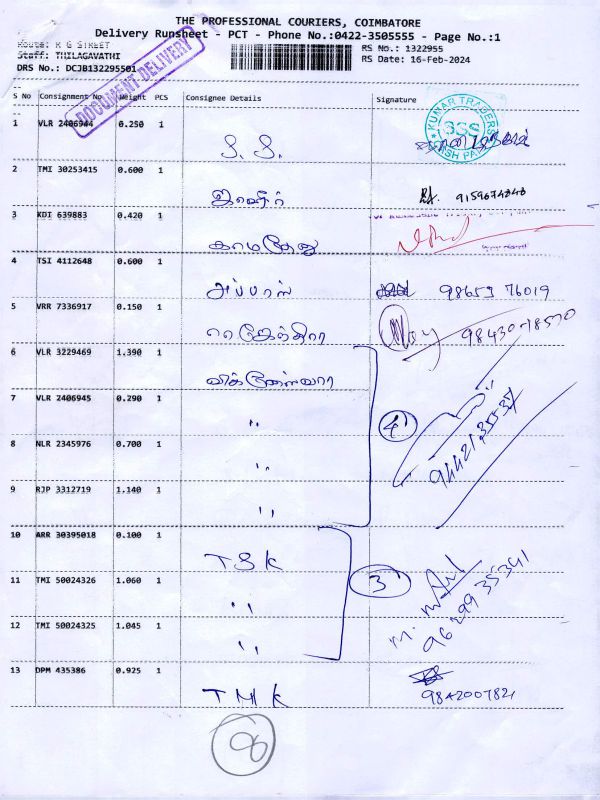 THE PROFESSIONAL COURIERS, COIMBATORE
Delivery Runsheet - PCT - Phone No.:0422-3505555 - Page No.:1
Route: R G STREET
Staff: THILAGAVATHI
DRS No.: DCJB132295501
RS No.: 1322955
RS Date: 16-Feb-2024
DOCUMENT DELIVERY
S No Consignment No Weight PCS Consignee Details Signature
KUMAR TRADERS
1 VLR 2406944 0.250 1 S. S.
2 TMI 30253415 0.600 1 9159674848
3 KDI 639883 0.420 1 காமதேனு
4 TSI 4112648 0.600 1 அப்பாஸ் 98659 76019
5 VRR 7336917 0.150 1
6 VLR 3229469 1.390 1 விக்னேஸ்வரா
7 VLR 2406945 0.290 1 "
4
8 NLR 2345976 0.700 1 "
9 RJP 3312719 1.140 1 "
10 ARR 30395018 0.100 1 TSK
11 TMI 50024326 1.060 1 "
3
12 TMI 50024325 1.045 1 "
96299 35341
13 DPM 435386 0.925 1 TMK
9842007821
8